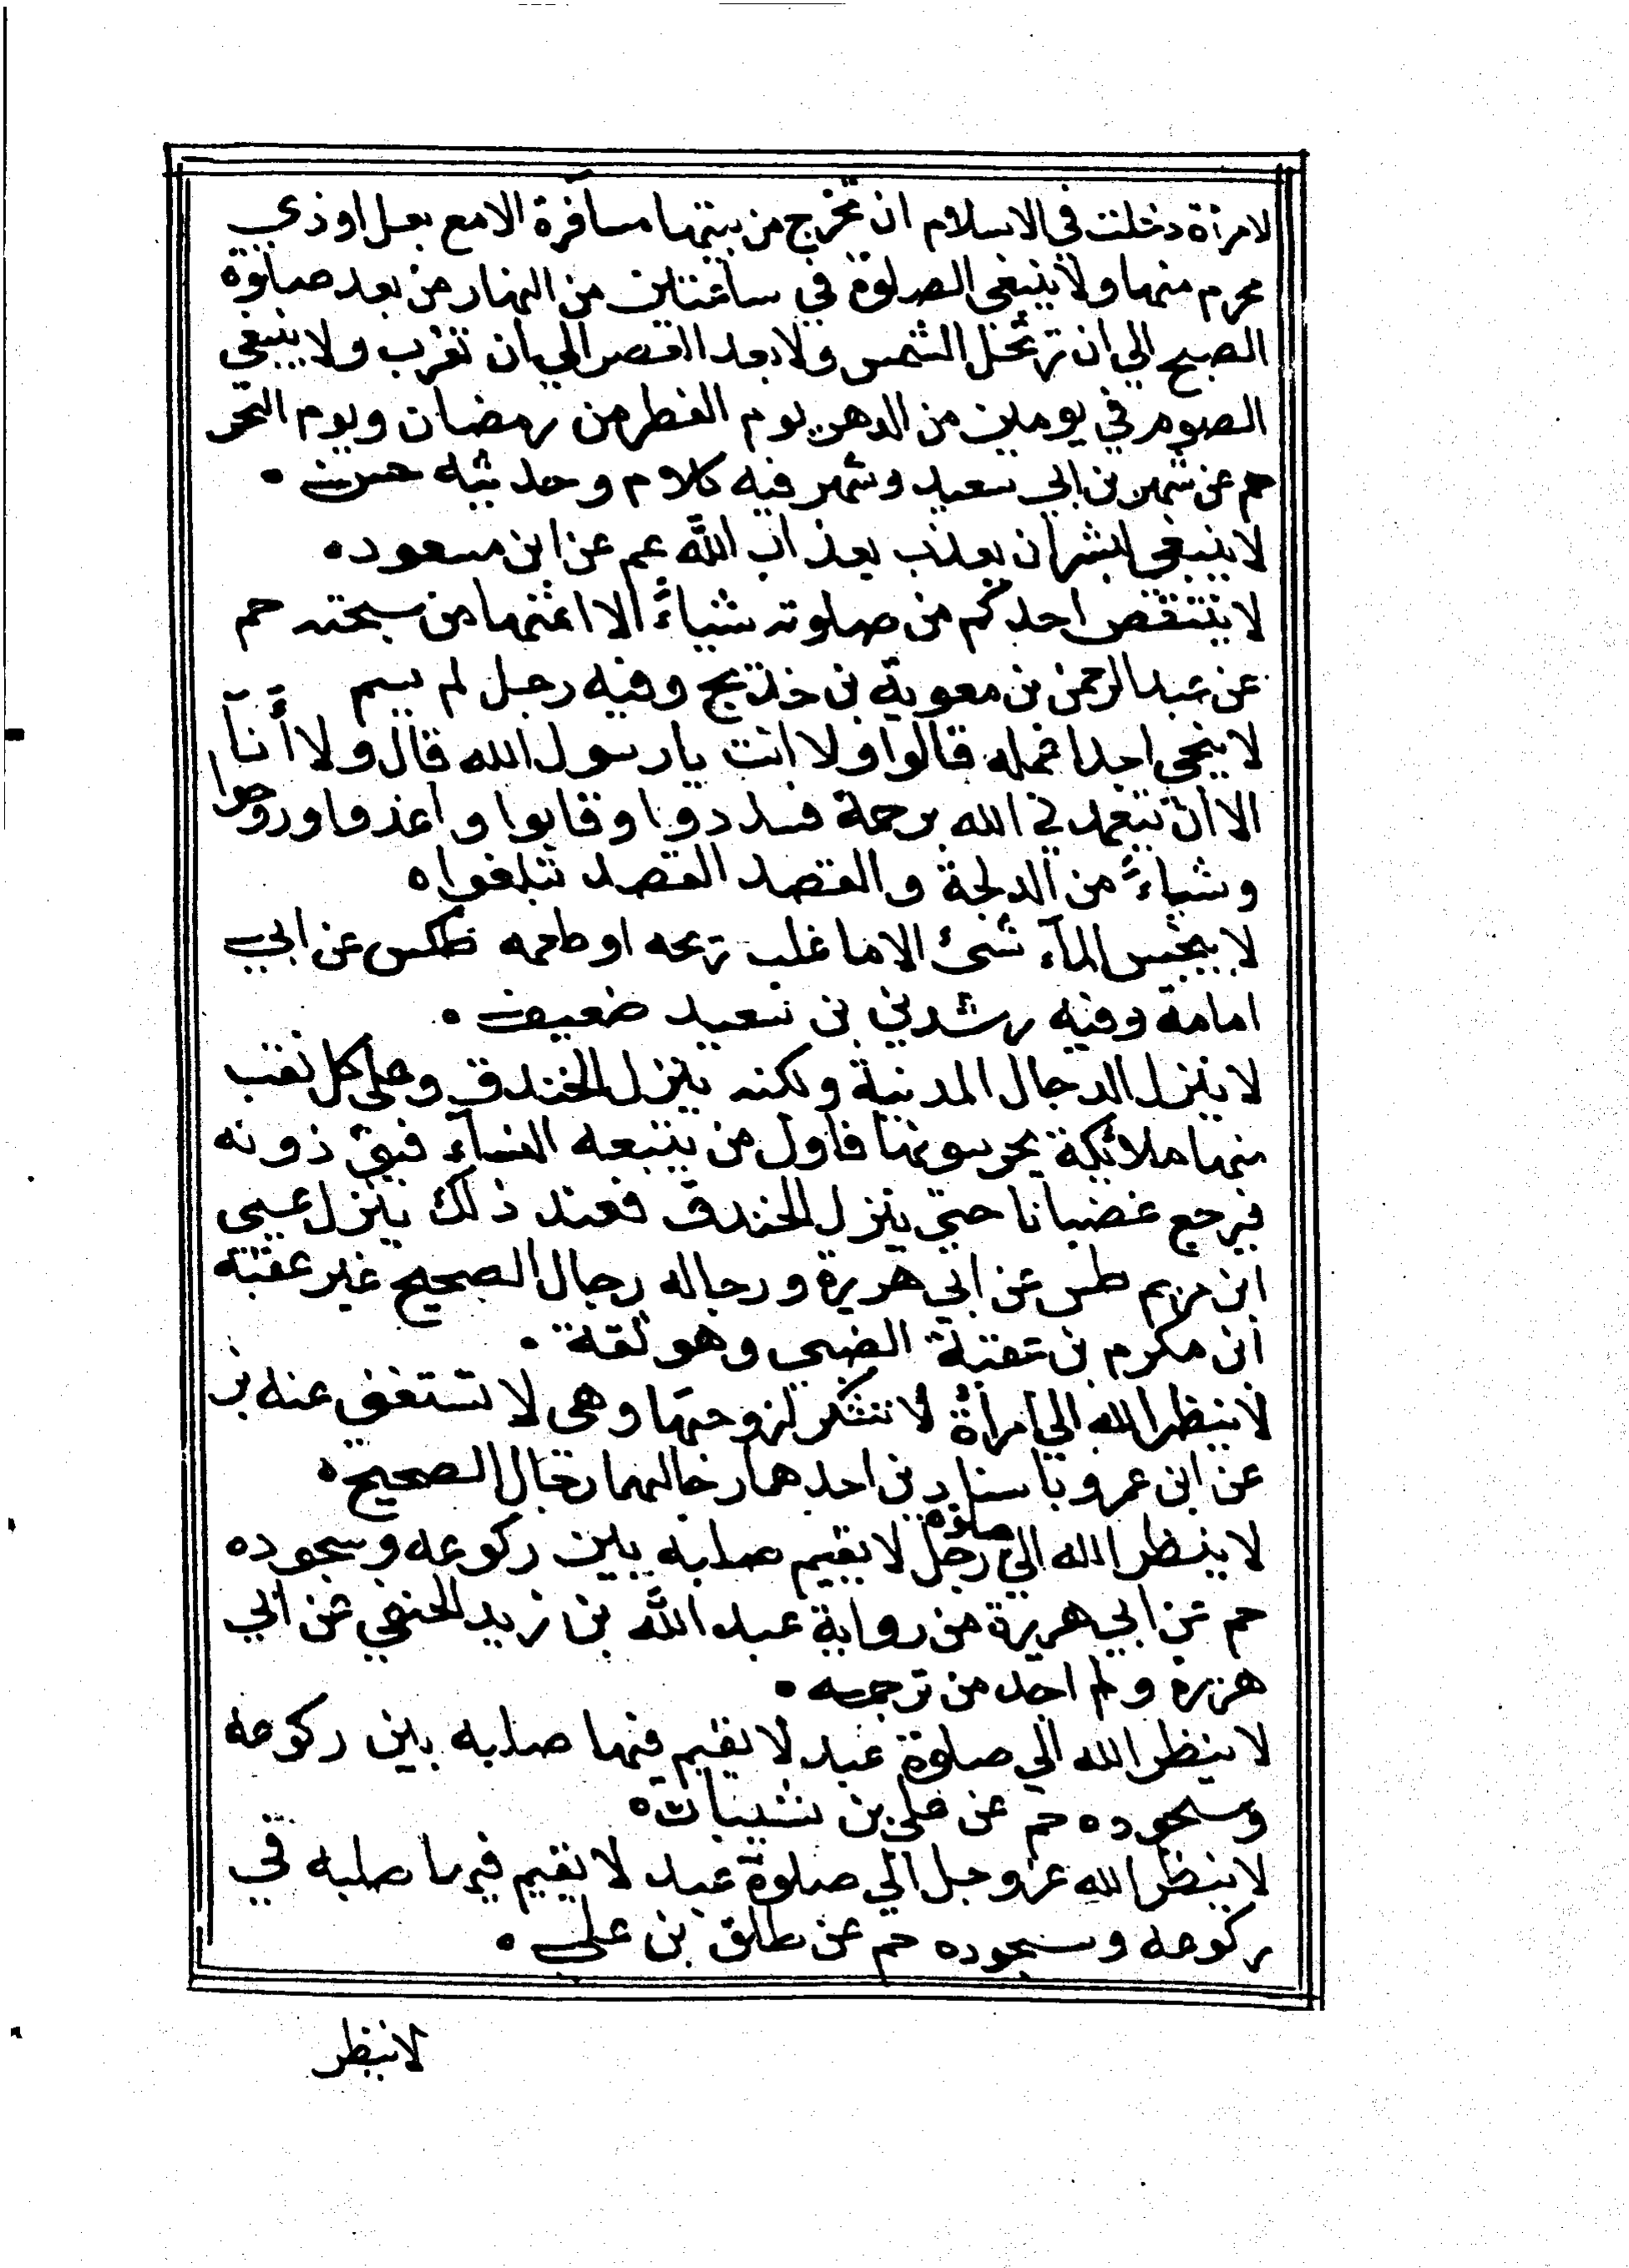 لامرأة دخلت في الاسلام ان تخرج من بيتها مسافرة الا مع بعل او ذي
محرم منها ولا ينبغي الصلوة في ساعتين من النهار من بعد صلوة
الصبح الي ان ترتحل الشمس ولا بعد العصر الي ان تغرب ولا ينبغي
الصوم في يومين من الدهر يوم الفطر من رمضان ويوم النحر
حم عن شهر بن ابي سعيد وشهر فيه كلام وحديثه حسن ه
لا ينبغي لبشر ان يعذب بعذاب الله عم عن ابن مسعود ه
لا ينتقص احدكم من صلوته شياءً الا اتمها من سبحته حم
عن عبد الرحمن بن معوية بن خديج وفيه رجل لم يسم
لا ينجي احدا عمله قالوا ولا انت يا رسول الله قال ولا أنآ
الا ان يتغمدني الله برحمة فسددوا وقابوا واغدوا وروحوا
وشياءً من الدلجة والقصد القصد تبلغوا ه
لا ينجس المآء شئ الا ما غلب ريحه او طعمه طكس عن ابي
امامة وفيه رشدني بن سعيد ضعيف ه
لا ينزل الدجال المدنية ولكنه ينزل الخندق وعلي كل نقب
منها ملائكة يحرسونها فاول من يتبعه النسآء فبق ذونه
فيرجع غضبانا حتي ينزل الخندق فعند ذلك ينزل عيسي
ابن مريم طس عن ابي هريرة ورجاله رجال الصحيح غير عقبة
ان مكرم بن عقبة الضبي وهو ثقة ه
لا ينظر الله الي امرأة لا تشكر لزوجها وهي لا تستغني عنه بز
عن ابن عمرو باسنادين احدهما رجالهما رجال الصحيح ه
لا ينظر الله الي صلوة رجل لا يقيم صلبه بين ركوعه وسجوده
حم عن ابي هريرة من رواية عبد الله بن زيد الحنفي عن ابي
هريرة ولم اجد من ترجمه ه
لا ينظر الله الي صلوة عبد لا يقيم فيها صلبه بين ركوعه
وسجوده حم عن علي بن شيبان ه
لا ينظر الله عز وجل الي صلوة عبد لا يقيم فيها صلبه في
ركوعه وسجوده حم عن طلق بن علي ه
لا ينظر